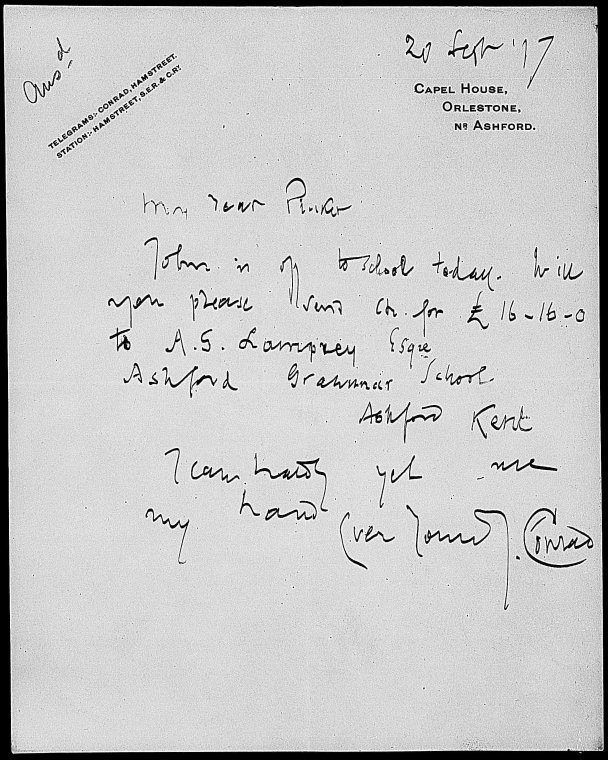 ansd
TELEGRAMS:- CONRAD, HAMSTREET.
STATION:- HAMSTREET, S.E.R. & C.RY.
20 Sept '17
CAPEL HOUSE,
ORLESTONE,
NR ASHFORD.
My dear Pinker
John is off to school today. Will
you please send ch. for £ 16-16-0
to A.S. Lamprey Esqre
Ashford Grammar School
Ashford Kent
I can hardly yet use
my hand
Ever yours J. Conrad